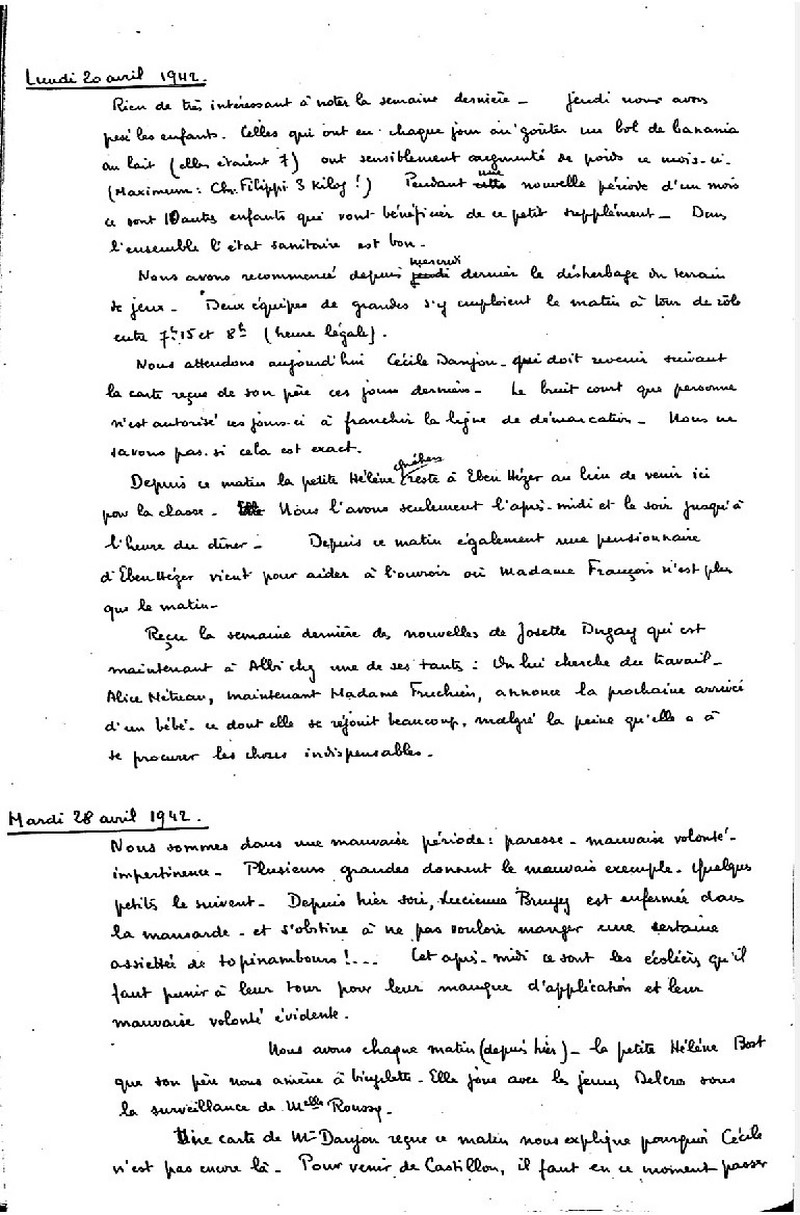 Lundi 20 avril 1942.
Rien de très intéressant à noter la semaine dernière - Jeudi nous avons
pesé les enfants. Celles qui ont eu chaque jour au goûter un bol de banania
au lait (elles étaient 7) ont sensiblement augmenté de poids ce mois-ci.
(Maximum : Ch. Filippi 3 kilog !) Pendant une nouvelle période d'un mois
ce sont 10 autres enfants qui vont bénéficier de ce petit supplément - Dans
l'ensemble l'état sanitaire est bon -
Nous avons recommencé depuis mercredi dernier le désherbage du terrain
de jeux - Deux équipes de grandes s'y emploient le matin à tour de rôle
entre 7h15 et 8h (heure légale).
Nous attendons aujourd'hui Cécile Danjou - qui doit revenir suivant
la carte reçue de son père ces jours derniers - Le bruit court que personne
n'est autorisé ces jours-ci à franchir la ligne de démarcation - Nous ne
savons pas si cela est exact.
Depuis ce matin la petite Hélène reste à Eben Hézer au lieu de venir ici
pour la classe - Nous l'avons seulement l'après-midi et le soir jusqu'à
l'heure du dîner - Depuis ce matin également une pensionnaire
d'Eben Hézer vient pour aider à l'ouvroir où Madame François n'est plus
que le matin -
Reçu la semaine dernière des nouvelles de Josette Dugay qui est
maintenant à Albi chez une de ses tantes : On lui cherche du travail -
Alice Métreau, maintenant Madame Fruchien, annonce la prochaine arrivée
d'un bébé - ce dont elle se réjouit beaucoup, malgré la peine qu'elle a à
se procurer les choses indispensables -
Mardi 28 avril 1942.
Nous sommes dans une mauvaise période : paresse - mauvaise volonté -
impertinence - Plusieurs grandes donnent le mauvais exemple - Quelques
petites le suivent - Depuis hier soir, Lucienne est enfermée dans
la mansarde - et s'obstine à ne pas vouloir manger une certaine
assiettée de topinambours !... Cet après-midi ce sont les écoliers qu'il
faut punir à leur tour pour leur manque d'application et leur
mauvaise volonté évidente.
Nous avons chaque matin (depuis hier) - la petite Hélène Bost
que son père nous amène à bicyclette - Elle joue avec les jeunes Delcro sous
la surveillance de Melle Roussy -
Une carte de Mr Danjou reçue ce matin nous explique pourquoi Cécile
n'est pas encore là - Pour venir de Castillon, il faut en ce moment passer